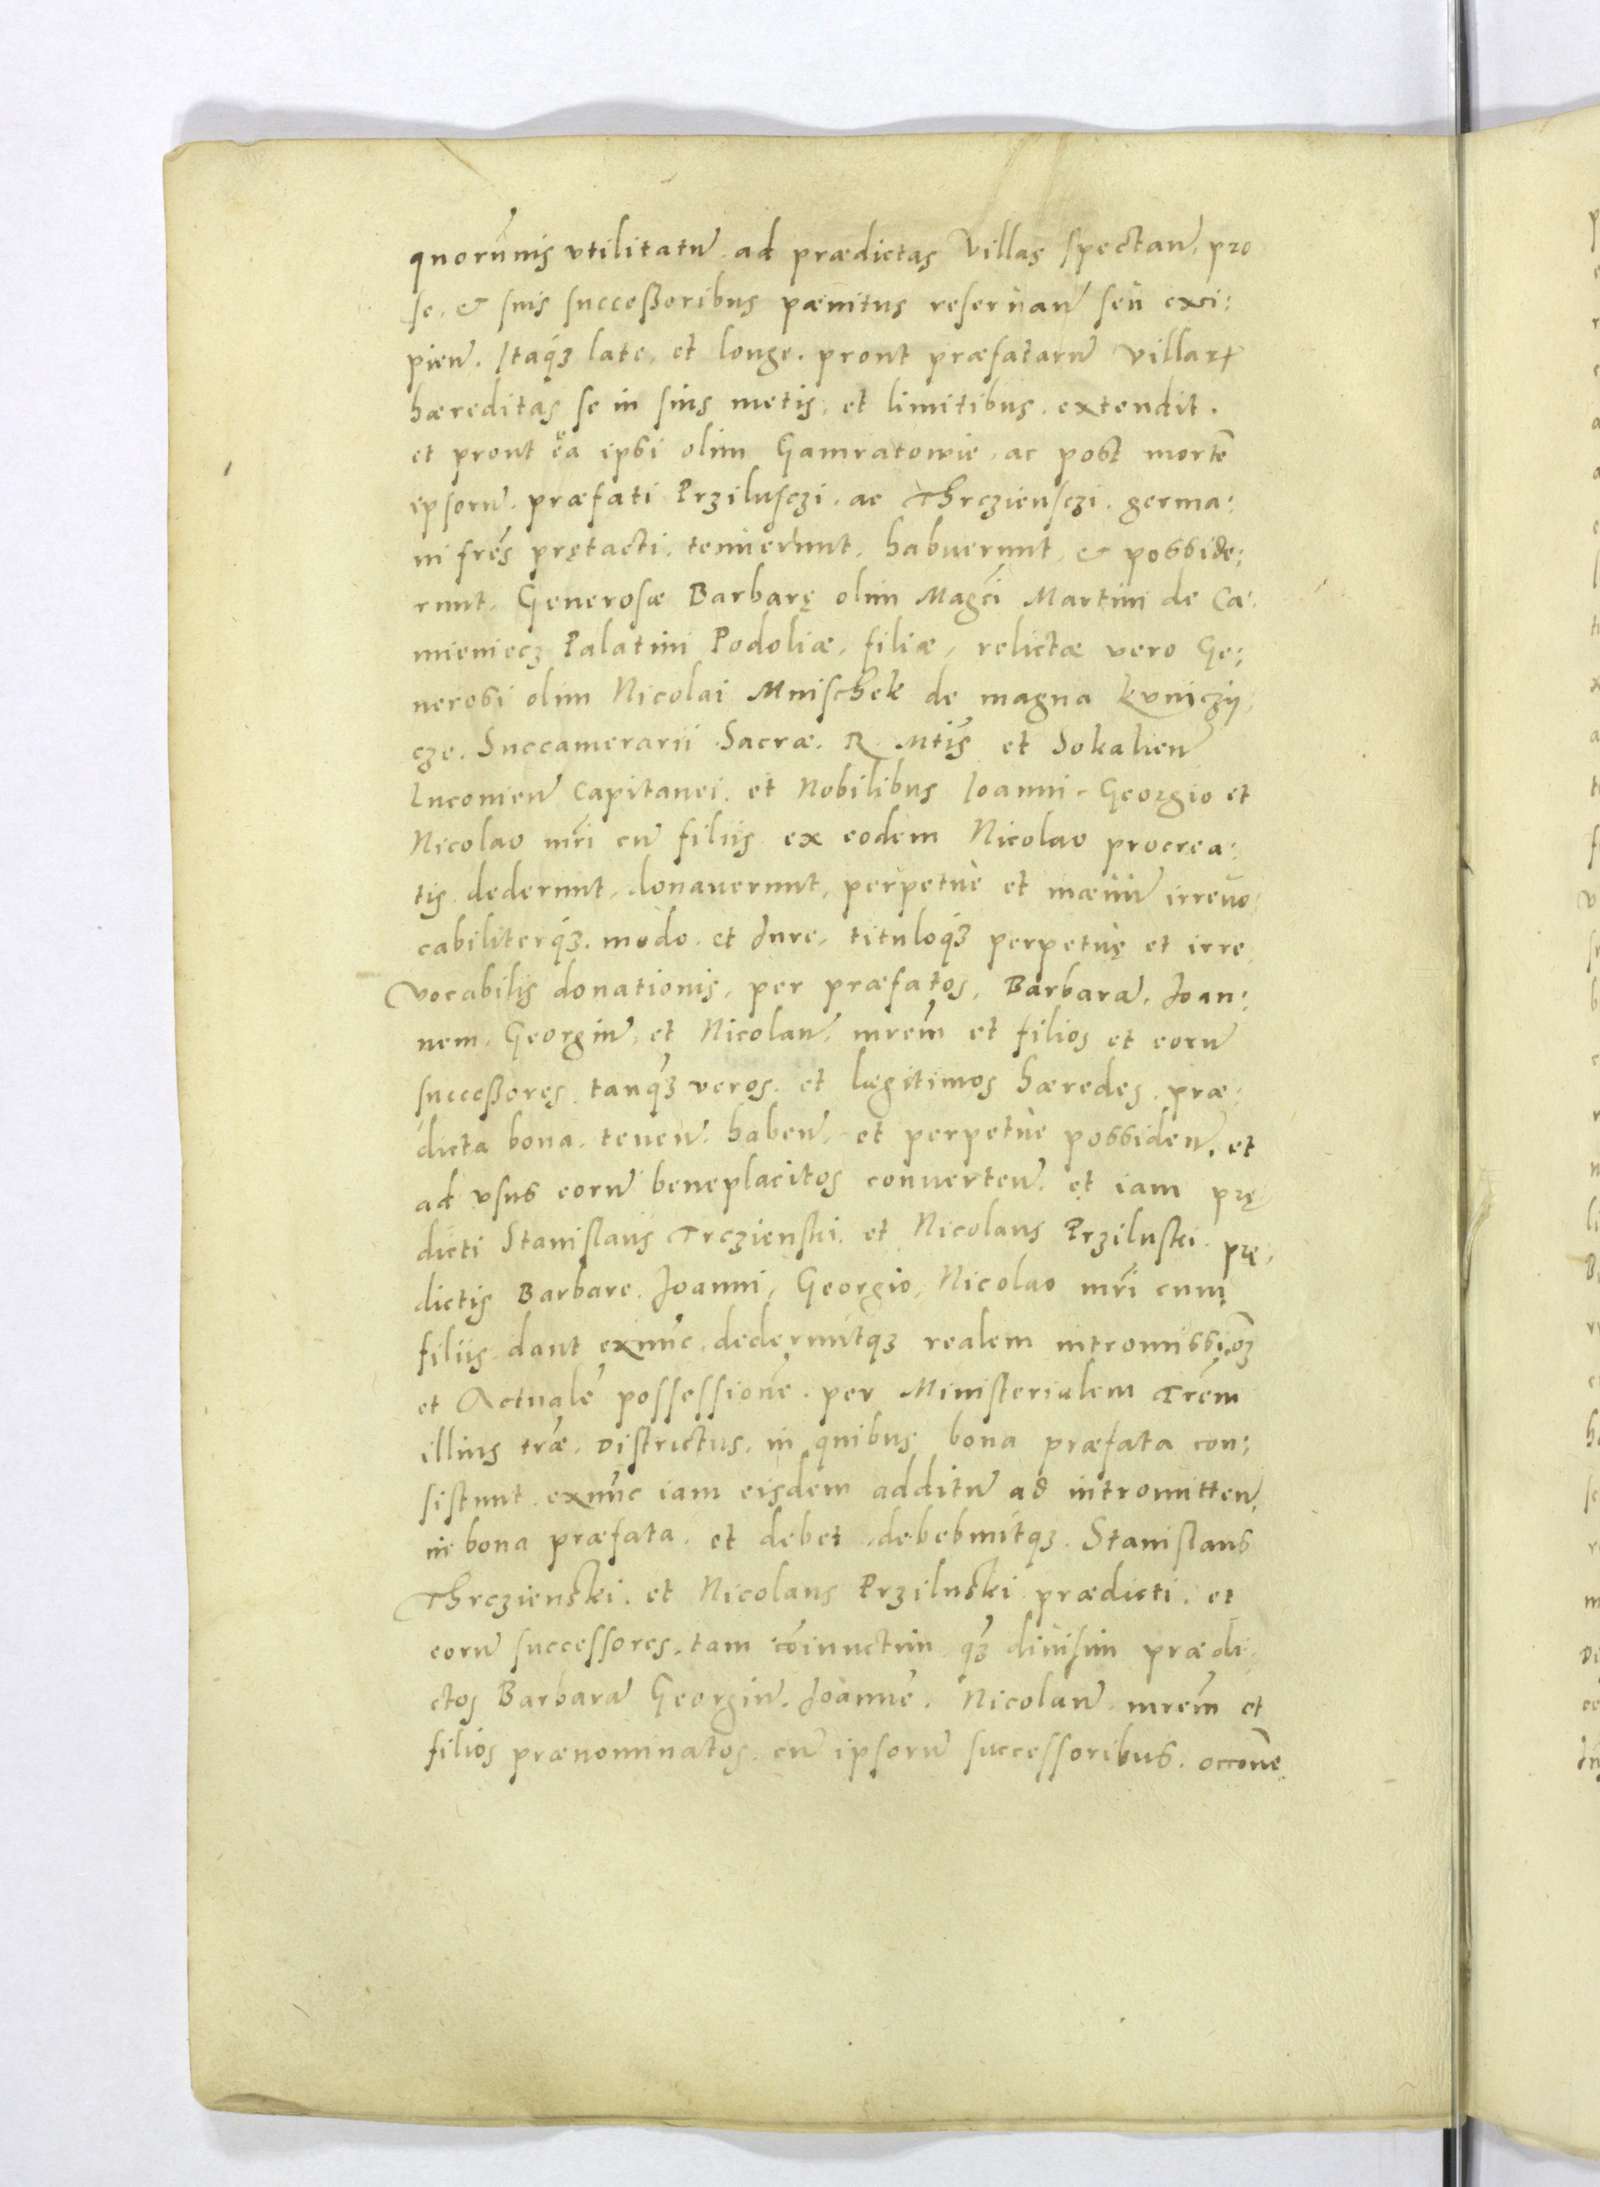 quorūuis vtilitatū. ad prædictas Villas spectan̄. pro
se. & suis successoribus pænitus reseruan̄ seu exci:
pien̄. Itaq́ꝫ late, et longe. prout præfatarū villaꝝ
hæreditas se in suis metis, et limitibus. extendit.
et prout ea ipsi olim Gamratowie, ac post mortē
ipsorū. præfati Przilusczi. ac Thrcziensczi. germa:
ni fr̄es prętacti. tenuerunt, habuerunt, & posside:
runt, Generosæ Barbarę olim Mag̃ci Martini de Ca:
mieniecz Palatini Podoliæ, filiæ, relictæ vero Ge:
nerosi olim Nicolai Mnischek de magna kuniczij
cze. Succamerarii Sacræ. R. Mtīs et Sokalien̄
Luconien̄ Capitanei. et Nobilibus Ioanni. Georgio et
Nicolao mr̄i cū filiis ex eodem Nicolao procrea:
tis dederunt, donauerunt, perpetuè et inæuū irreuo
cabiliterq́ꝫ. modo. et Jure, tituloq́ꝫ perpetuę et irre
vocabilis donationis, per præfatos, Barbarā, Joan:
nem. Georgiū, et Nicolaū, mr̄em et filios et eorū
successores. tanq́ꝫ veros. et lægitimos hæredes. præ:
dicta bona. tenen̄. haben̄. et perpetuè possiden̄. et
ad vsus eorū beneplacitos conuerten̄. et iam prę
dicti Stanislaus Trczienski. et Nicolaus Prziluski prę,
dictis Barbare. Joanni, Georgio, Nicolao mr̄i cum
filiis dant exnūc, dederuntq́ꝫ realem intromissiōꝫ
et Actualē possessionē. per Ministerialem Tr̄em
illius tr̄æ. Districtus. in quibus bona præfata con:
sistunt exnūc iam eisdem additū ad intromitten̄.
in bona præfata. et debet, debebuntq́ꝫ. Stanislaus
Thrczienski. et Nicolaus Przilnski prædicti. et
eorū successores. tam cōiunctim q́ꝫ diuisim prædi
ctos Barbarā Georgiū. Joannē. Nicolaū. mr̄em et
filios prænominatos. cū ipsorū successoribus. occōne